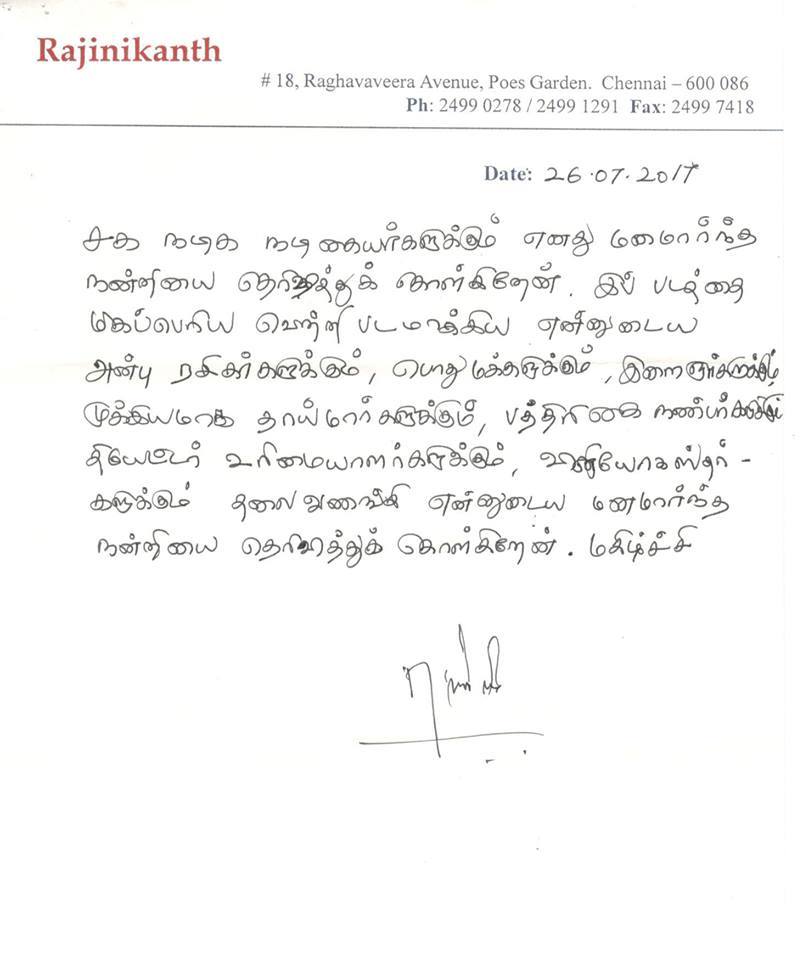 Rajinikanth
# 18, Raghavaveera Avenue, Poes Garden. Chennai – 600 086
Ph: 2499 0278 / 2499 1291 Fax: 2499 7418
Date: 26.07.2017
சக நடிக நடிகையர்களுக்கும் எனது மனமார்ந்த
நன்றியை தெரிவித்துக் கொள்கிறேன். இப் படத்தை
மிகப்பெரிய வெற்றி படமாக்கிய என்னுடைய
அன்பு ரசிகர்களுக்கும், பொதுமக்களுக்கும், இளைஞர்களுக்கும்
முக்கியமாக தாய்மார்களுக்கும், பத்திரிகை நண்பர்களுக்கும்
தியேட்டர் உரிமையாளர்களுக்கும், வினியோகஸ்தர் -
களுக்கும் தலை வணங்கி என்னுடைய மனமார்ந்த
நன்றியை தெரிவித்துக் கொள்கிறேன். மகிழ்ச்சி